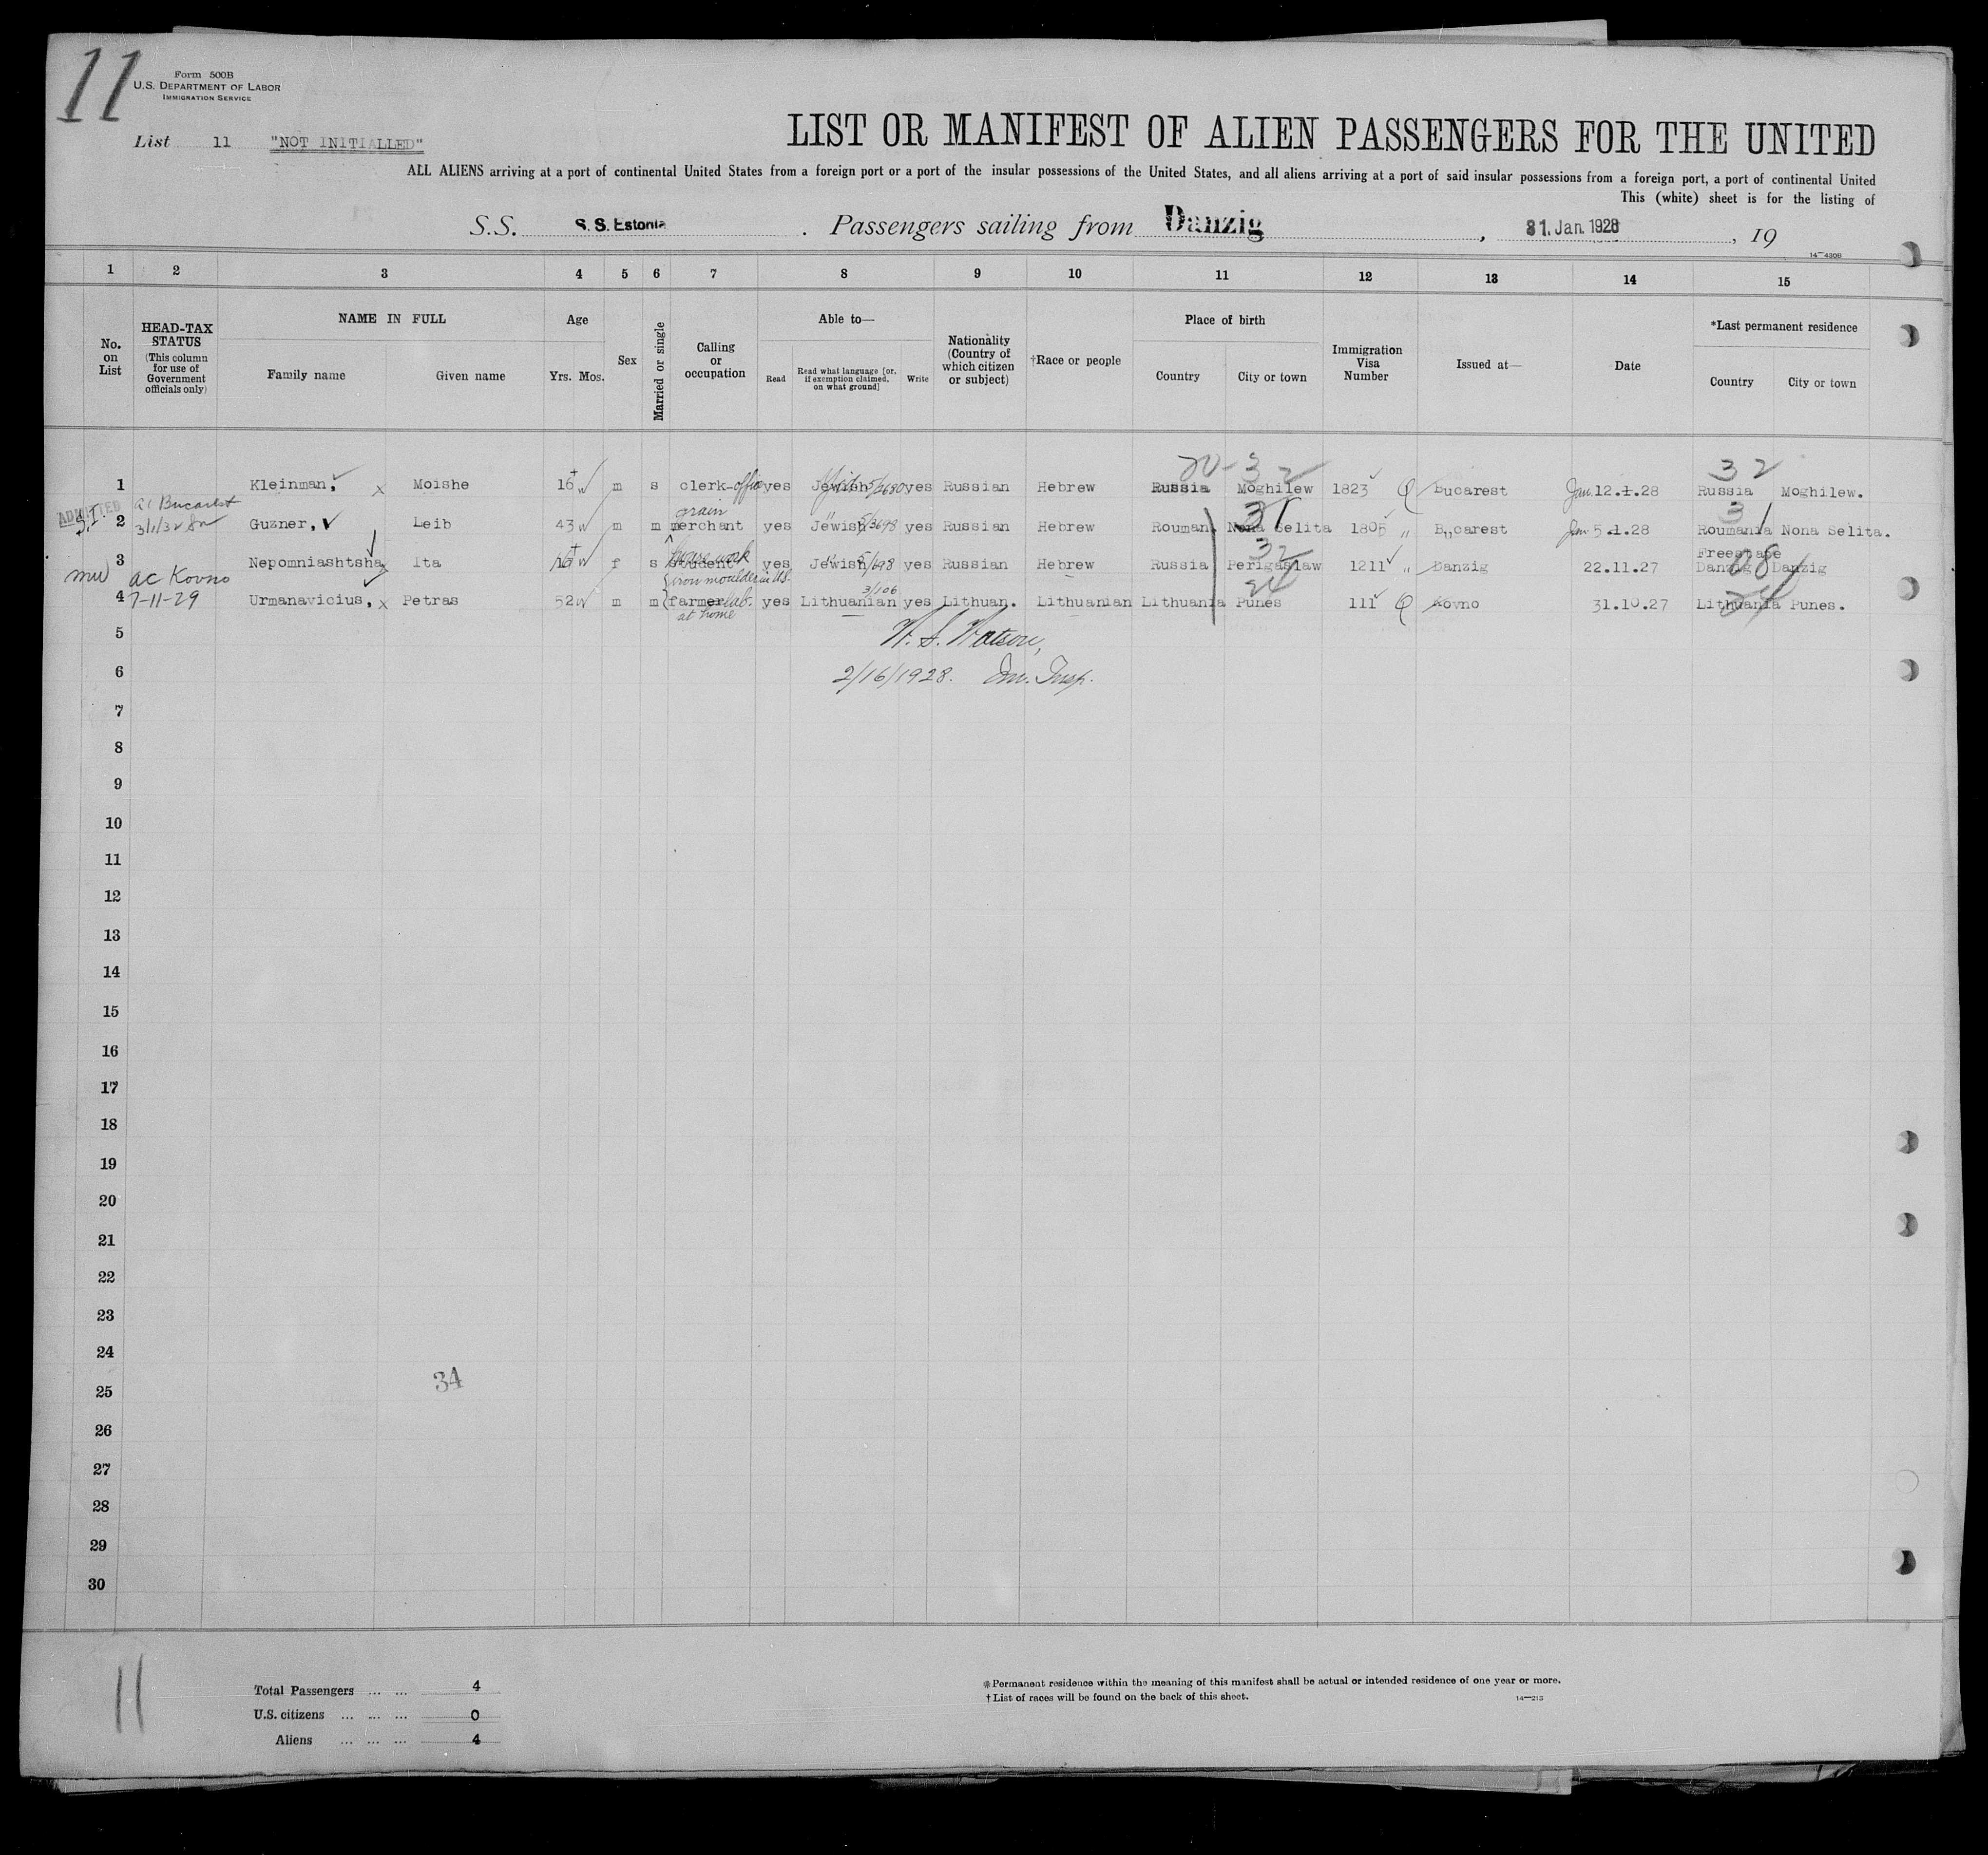 11
Form 500B
U.S. DEPARTMENT OF LABOR
IMMIGRATION SERVICE
List 11 "NOT INITIALLED"
LIST OR MANIFEST OF ALIEN PASSENGERS FOR THE UNITED
ALL ALIENS arriving at a port of continental United States from a foreign port or a port of the insular possessions of the United States, and all aliens arriving at a port of said insular possessions from a foreign port, a port of continental United
This (white) sheet is for the listing of
S.S. S. S. Estonia . Passengers sailing from Danzig , 31. Jan. 1928 , 19
14—4308
1 2 3 4 5 6 7 8 9 10 11 12 13 14 15
No. on List
HEAD-TAX STATUS (This column for use of Government officials only)
NAME IN FULL
Family name Given name
Age
Yrs. Mos.
Sex
Married or single
Calling or occupation
Able to—
Read Read what language [or, if exemption claimed, on what ground] Write
Nationality (Country of which citizen or subject)
†Race or people
Place of birth
Country City or town
Immigration Visa Number
Issued at—
Date
*Last permanent residence
Country City or town
20-32 32
1 Kleinman, x Moishe 16 m s clerk-office yes Jewish 5/3680 yes Russian Hebrew Russia Moghilew 1823 Bucarest Jan. 12.1.28 Russia Moghilew.
ADMITTED S.I. ac Bucarest
3/1/32
grain
31 31
2 Guzner, Leib 43 m m merchant yes Jewish 5/3698 yes Russian Hebrew Rouman. Nona Selita 1805 " Bucarest Jan 5.1.28 Roumania Nona Selita.
house work
32 Freestate 08
3 Nepomniashtsha, x Ita 16 f s student yes Jewish 5/698 yes Russian Hebrew Russia Perigaslaw 1211 " Danzig 22.11.27 Danzig Danzig
ac Kovno
7-11-29
iron moulder in US.
3/106
24 24
4 Urmanavicius, x Petras 52 m m farmer lab. yes Lithuanian yes Lithuan. Lithuanian Lithuania Punes 111 Kovno 31.10.27 Lithuania Punes.
at home
5
W. S. Watson,
6
2/16/1928. Imm. Insp.
7
8
9
10
11
12
13
14
15
16
17
18
19
20
21
22
23
24
34
25
26
27
28
29
30
11
Total Passengers ... ... 4
U.S. citizens ... ... ... 0
Aliens ... ... ... 4
*Permanent residence within the meaning of this manifest shall be actual or intended residence of one year or more.
†List of races will be found on the back of this sheet.
14—213